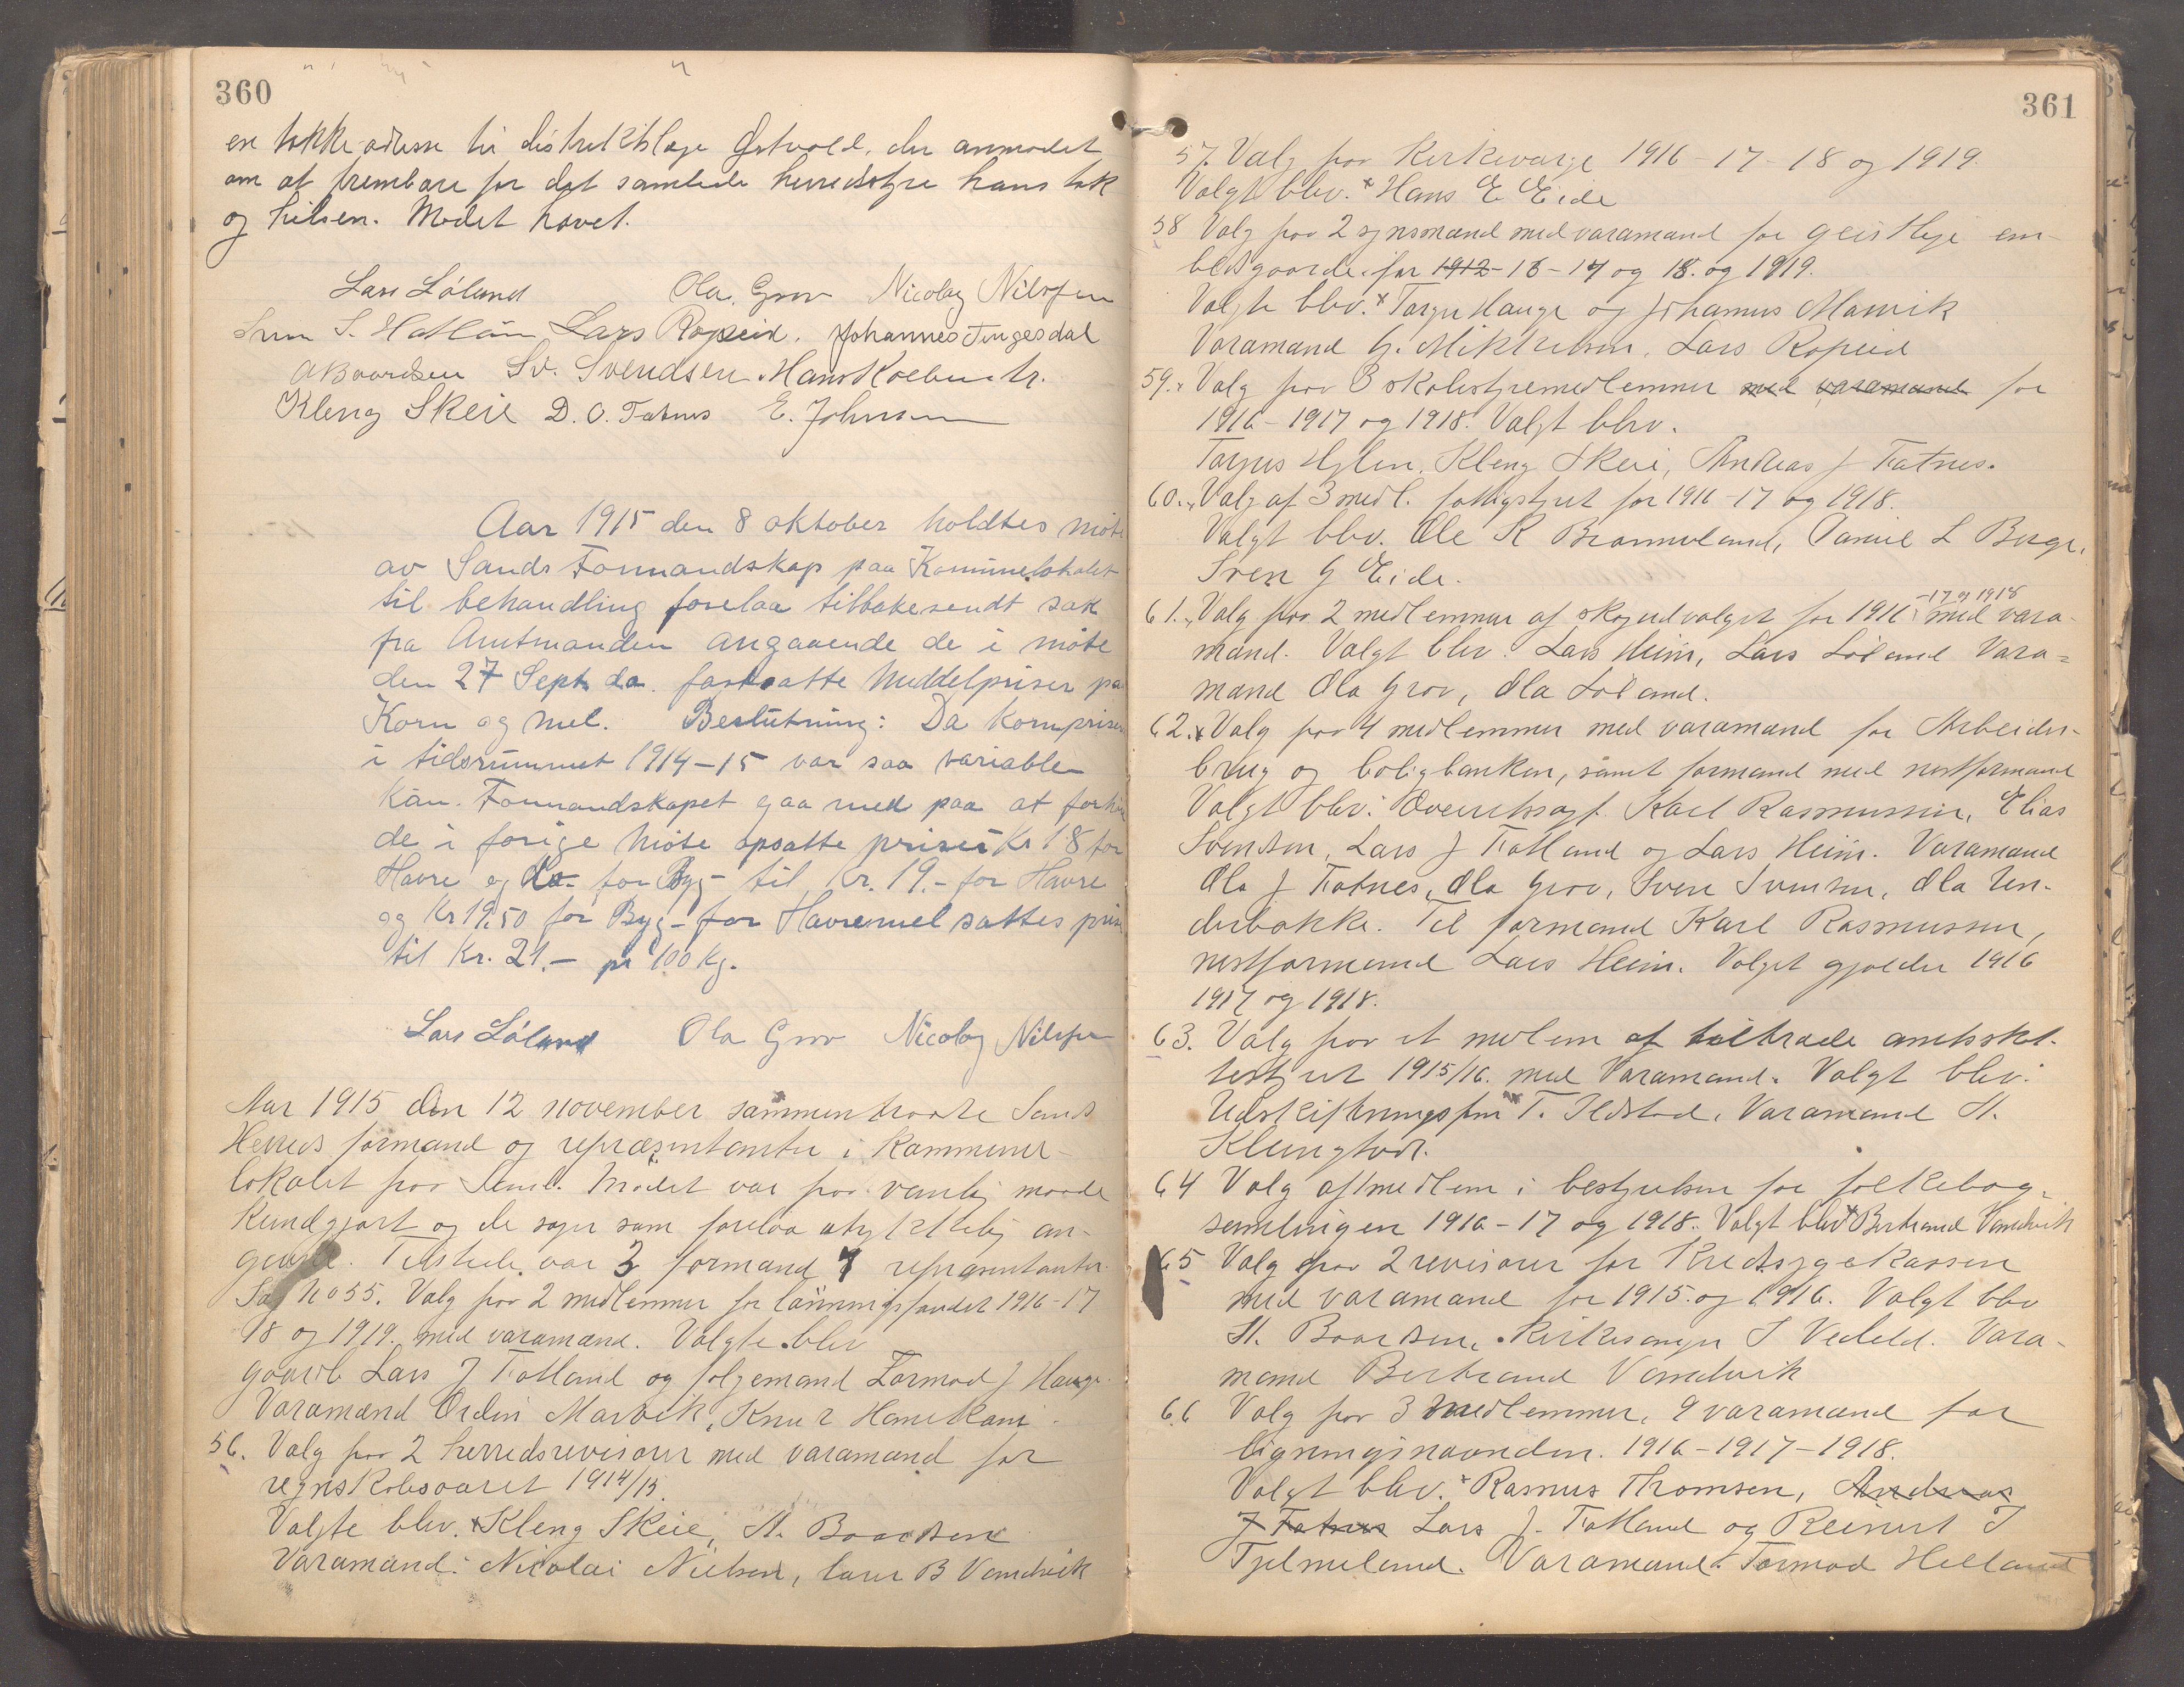 360
en takke adresse til distriktslæge Østvold, der anmodet
om at frembære for det samlede herredstyre hans tak
og hilsen. Mødet hævet.
Lars Løland Ola Grov Nicolay Nilssen
S. Lars Ropeid. Johannes Tengesdal
A Baardsen Sv. Svendsen. Hans
Kleng Skeie D. O. Fatnes E. Johnsen
Aar 1915 den 8 oktober holdtes møte
av Sands Formandskap paa Kommunelokalet
til behandling forelaa tilbakesendt sak
fra Amtmanden angaaende de i møte
den 27 Sept. d.a. fastsatte Middelpriser pa
Korn og mel. Beslutning: Da kornprisen
i tidsrummet 1914-15 var saa variable
kan Formandskapet gaa med paa at forhøi
de i forige Møte opsatte priser Kr 18 for
Havre og for Byg til Kr. 19.- for Havre
og Kr 19.50 for Byg - for Havremel sattes pris
til Kr. 21.- pr 100 Kg.
Lars Løland Ola Grov Nicolay Nilssen
Aar 1915 den 12 november sammentraate Sands
Herreds formænd og repræsentanter i Kommune
lokalet paa Sand. Mødet var paa vanlig maade
kundgjort og de sager som forelaa uttrykkelig an-
given. Tilstede var 3 formænd 7 repræsentanter.
Sag No 55. Valg paa 2 medlemmer for lønningsfondet 1916-17
18 og 1919. med varamænd. Valgte blev
gaardb Lars J Fatland og følgemand Tormod J Hauge.
Varamænd Ordin Marvik, Knut Hamrekam.
56. Valg paa 2 herredsrevisorer med varamænd for
regnskabsaaret 1914/15.
Valgte blev. Kleng Skeie, A. Baardsen
Varamænd: Nicolai Nielsen, lærer B Vandvik
361
57. Valg paa Kirkeværge 1916-17-18 og 1919.
Valgt blev. Hans E Eide
58 Valg paa 2 synsmænd med varamænd for geistlige em-
bedsgaarde for 1912-16-17 og 18. og 1919.
Valgte blev. Torger Hauge og Johannes Marvik
Varamænd G. Mikkelsen, Lars Ropeid
59. Valg paa 3 skolestyremedlemmer med varamænd for
1916-1917 og 1918. Valgt blev.
Torjus Hylen, Kleng Skeie, Andreas J Fatnes.
60. Valg af 3 medl. fattigstyret for 1916-17 og 1918.
Valgt blev. Ole R Brommeland, Daniel L Berge,
Sven G Eide.
61. Valg paa 2 medlemmer af skogudvalget for 1916 -17 og 1918 med vara-
mænd. Valgt blev. Lars Heim, Lars Løland Vara=
mænd Ola Grov, Ola Løland.
62. Valg paa 4 medlemmer med varamænd for Arbeider-
brug og boligbanken, samt formand med nestformand
Valgt blev: Overrettssagf. Karl Rasmussen, Elias
Svendsen, Lars J Fatland og Lars Heim. Varamænd
Ola J Fatnes, Ola Grov, Sven Svensen, Ola Un-
derbakke. Til formand Karl Rasmussen,
nestformand Lars Heim. Valget gjælder 1916
1917 og 1918.
63. Valg paa et medlem af tiltræde amtsskat-
testyret 1915/16. med Varamand. Valgt blev:
Udskiftningsfm T. Ildstad. Varamand A.
Klungtvedt.
64 Valg af 1 medlem i bestyrelsen for folkebog-
samlingen 1916-17 og 1918. Valgt blev Bertrand Vandvik
65 Valg paa 2 revisorer for Kredssygekassen
med varamænd for 1915. og 1916. Valgt blev
A. Baardsen, kirkesanger I Vedeld. Vara-
mænd Bertrand Vandvik
66 Valg paa 3 medlemmer, 9 varamænd for
ligningsnævnden. 1916-1917-1918.
Valgt blev. Rasmus Thomsen, Andreas
J Fatnes Lars J. Fatland og Reinert T
Tjelmeland. Varamænd: Tormod Helland